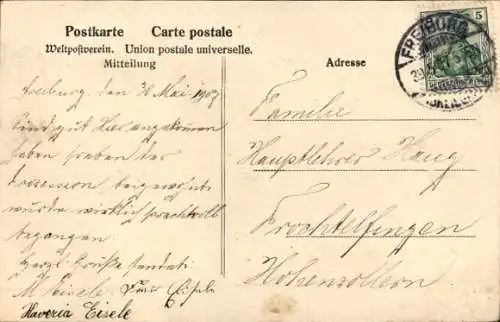 Postkarte Carte postale
Weltpostverein. Union postale universelle.
Mitteilung
Adresse
5
FREIBURG
Freiburg, den 30 Mai 1907
Sind gut hier angekommen
haben soeben der
Prozession beigewohnt
wurde wirklich prachtvoll
begangen.
Herzl. Grüße sendet
M. Eisele. Eisele
Xaveria Eisele
Familie
Hauptlehrer Haug
Trochtelfingen
Hohenzollern